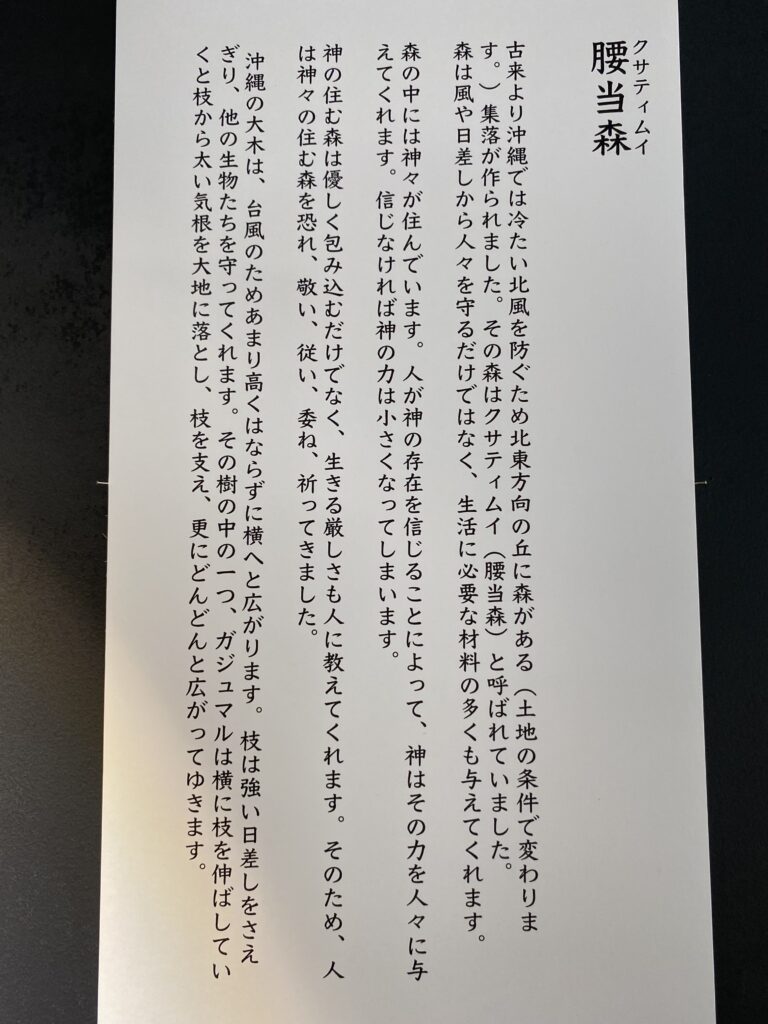 クサティムイ
腰当森
古来より沖縄では冷たい北風を防ぐため北東方向の丘に森がある（土地の条件で変わりま
す。）集落が作られました。その森はクサティムイ（腰当森）と呼ばれていました。
森は風や日差しから人々を守るだけではなく、生活に必要な材料の多くも与えてくれます。
森の中には神々が住んでいます。人が神の存在を信じることによって、神はその力を人々に与
えてくれます。信じなければ神の力は小さくなってしまいます。
神の住む森は優しく包み込むだけでなく、生きる厳しさも人に教えてくれます。そのため、人
は神々の住む森を恐れ、敬い、従い、委ね、祈ってきました。
沖縄の大木は、台風のためあまり高くはならずに横へと広がります。枝は強い日差しをさえ
ぎり、他の生物たちを守ってくれます。その樹の中の一つ、ガジュマルは横に枝を伸ばしてい
くと枝から太い気根を大地に落とし、枝を支え、更にどんどんと広がってゆきます。